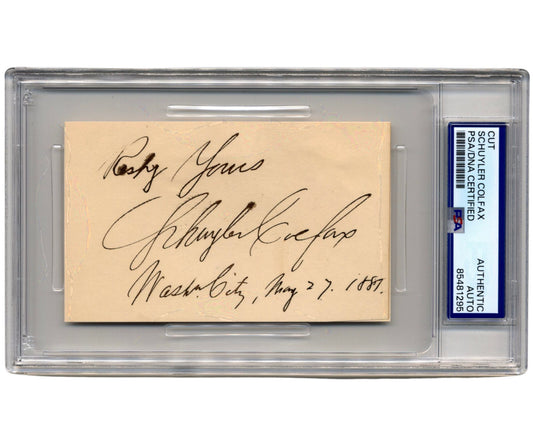 Resp'y Yours
Schuyler Colfax
Washn. City, May 27. 1881.
CUT
SCHUYLER COLFAX
PSA/DNA CERTIFIED
PSA
AUTHENTIC
AUTO
85481295